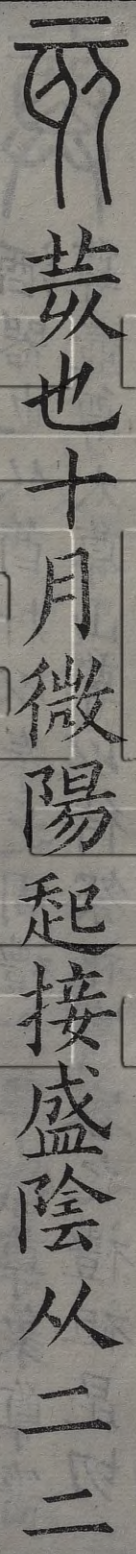 亥荄也十月微陽起接盛陰从二二